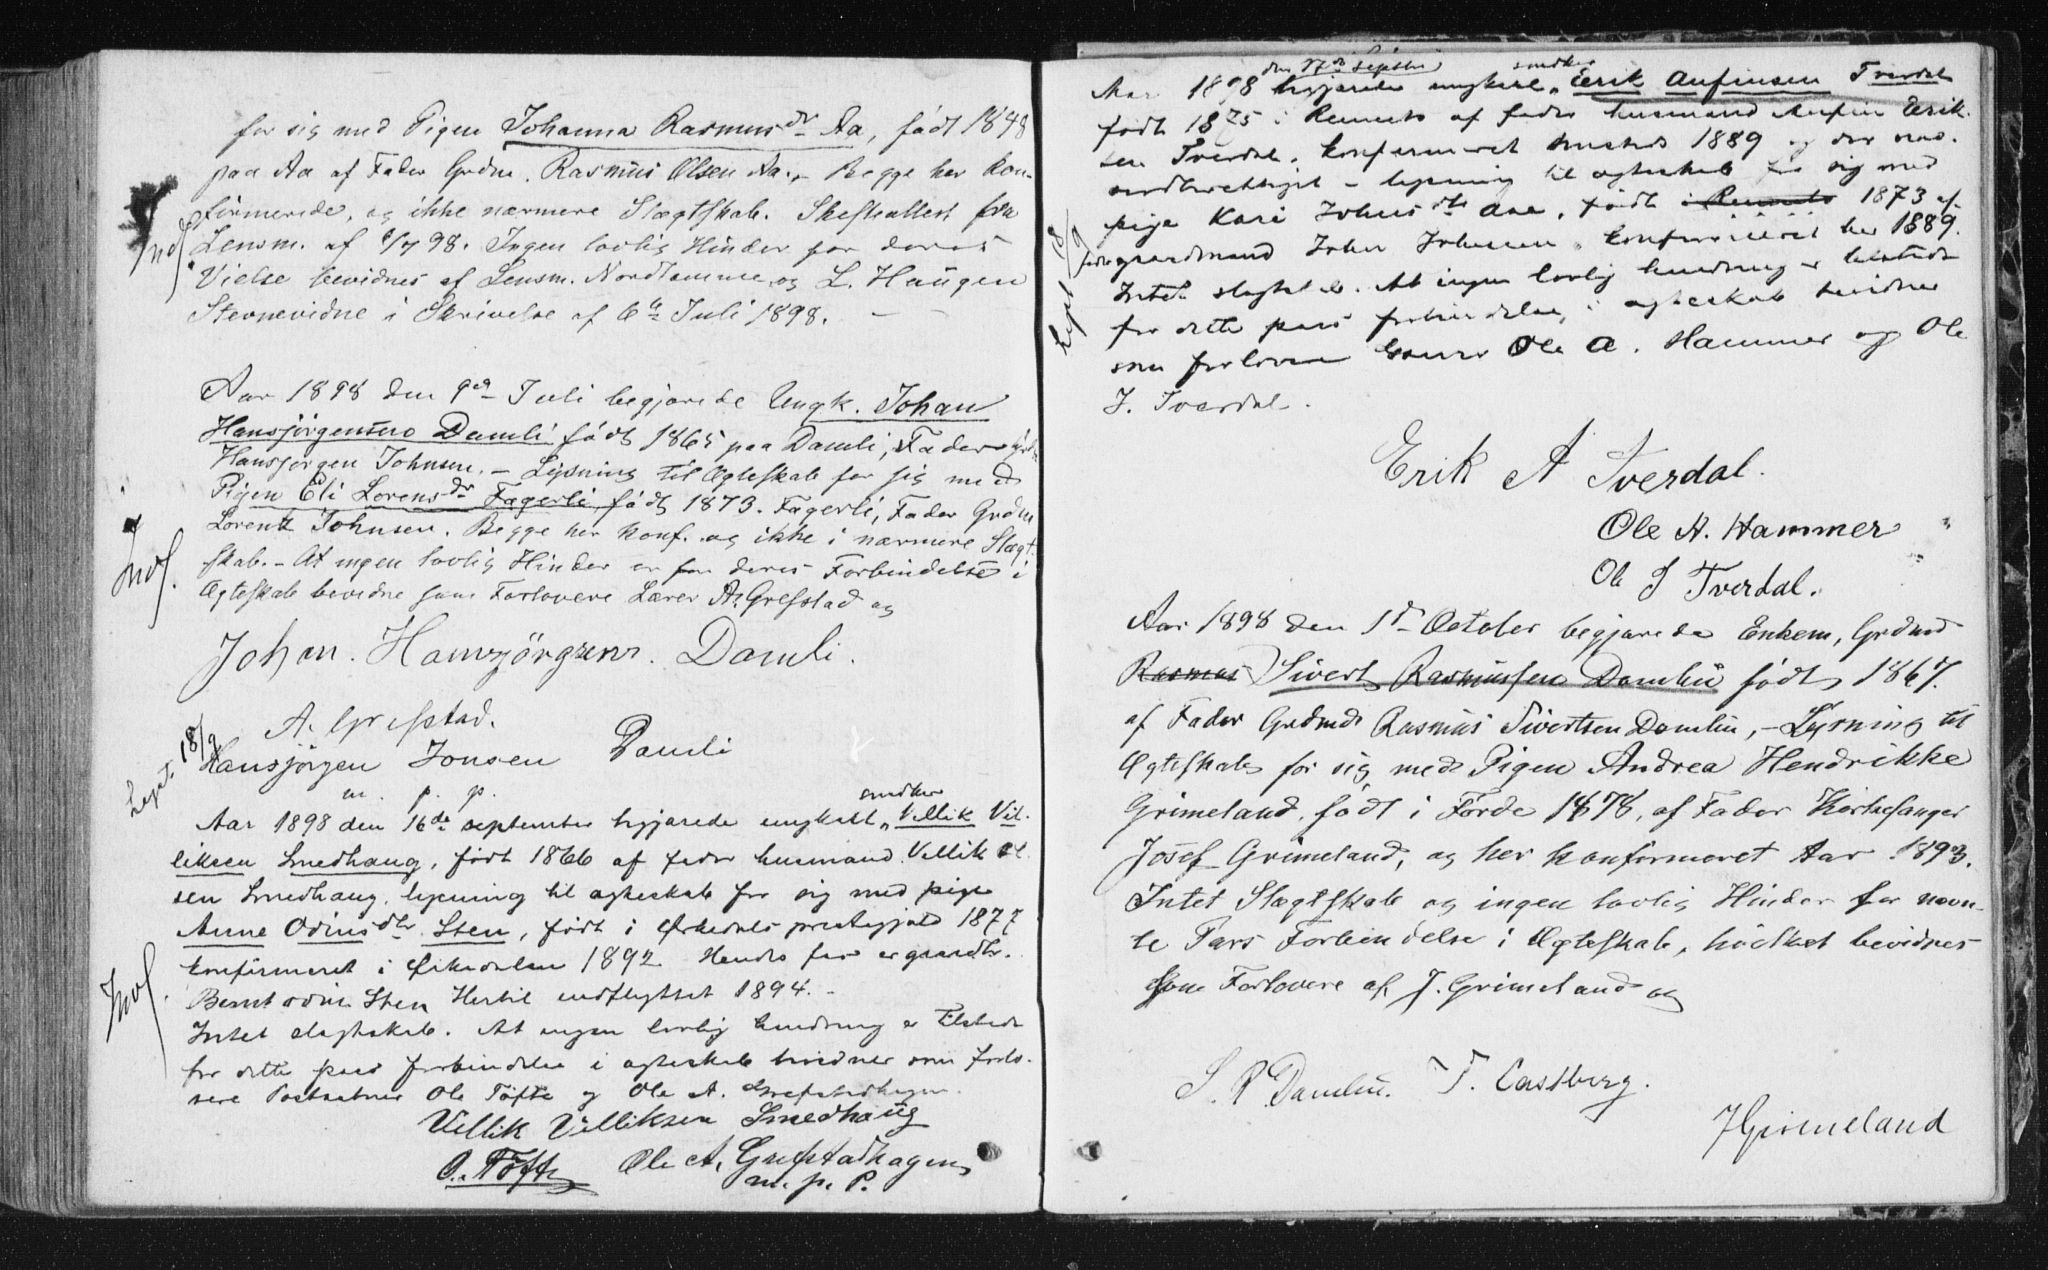 for sig med Pigen Johanna Rasmusdr Aa, født 1848
paa Aa af Fader Grdm. Rasmus Olsen Aa. Begge her kon-
firmerede, og ikke nærmere Slægtskab. Skifteattest fra
Lensm. af 98. Ingen lovlig Hinder for deres
Vielse bevidnes af Lensm. Nordlamme og L. Haugen
Stevnevidne i Skrivelse af 6te Juli 1898.
Aar 1898 den 9de Juli begjærede Ungk. Johan
Hansjörgensen Damli født 1865 paa Damli, Fader
Hansjörgen Johnsen. - Lysning til Ægteskab for sig med
Pigen Eli Lorensdr Fagerli, født 1873. Fagerli, Fader Grdm
Lorentz Johnsen. Begge her konf. og ikke i nærmere Slægt-
skab. - At ingen lovlig Hinder er for deres Forbindelse i
Ægteskab bevidne som Forlovere Lærer A. Grefstad og
Johan. Hansjörgsens. Damli.
A. Grefstad.
Hansjörgen Jonsen Damli
m. p. p.
Lyst. 18/9
smedker
Aar 1898 den 16de september begjærede ungkall Villik Vil-
liksen Smedhaug, født 1866 af fader husmand Villik Ol-
sen Smedhaug, lysning til ægteskab for sig med pige
Anne Odinsdtr Sten, født i Ørkedals prestegjæld 1877
konfirmeret i Ørkedalen 1892 Hendes far er gaardbr.
Bernt Odin Sten Hertil indflyttet 1894. -
Intet slægtskab. At ingen lovlig hindring er tilstede
for dette pars forbindelse i ægteskab bevidner som forlo-
vere Ole Töfte og Ole A. Grefstadhagen.
Villik Villiksen Smedhaug
O. Töfte Ole A. Grefstadhagen
m. p. P.
den 17de Septbr smedker
Aar 1898 begjærede ungkarl Erik Anfinsen Tverdal
født 1875 i Rennebo af fader husmand Anfin Erik-
sen Tverdal. Konfirmeret 1889 og der
- lysning til ægteskab for sig med
pige Kari Johnsdtr Aae, født i Rennebo 1873 af
fader gaardmand John Johnsen. Konfirmeret her 1889.
Intet slægtskab. At ingen lovlig hindring er tilstede
for dette pars forbindelse i ægteskab bevidner
som forlovere Ole A. Hammer og Ole
J. Tverdal.
Erik A Tverdal.
Ole A. Hammer
Ole J Tverdal.
Aar 1898 den 1ste October begjærede Enkem, Grdmd
Rasmus Sivert Rasmussen Damlii født 1867.
af Fader Grdmd Rasmus Sivertsen Damlii, - Lysning til
Ægteskab for sig med Pigen Andrea Hendrikke
Grimeland, født i Førde 1878, af Fader Kirkesanger
Josef Grimeland, og her konfirmeret Aar 1893.
Intet Slægtskab og ingen lovlig Hinder for nævn-
te Pars Forbindelse i Ægteskab, hvilket bevidnes
som Forlovere af J. Grimeland og
S. R. Damlii. T. Castberg.
J Grimeland